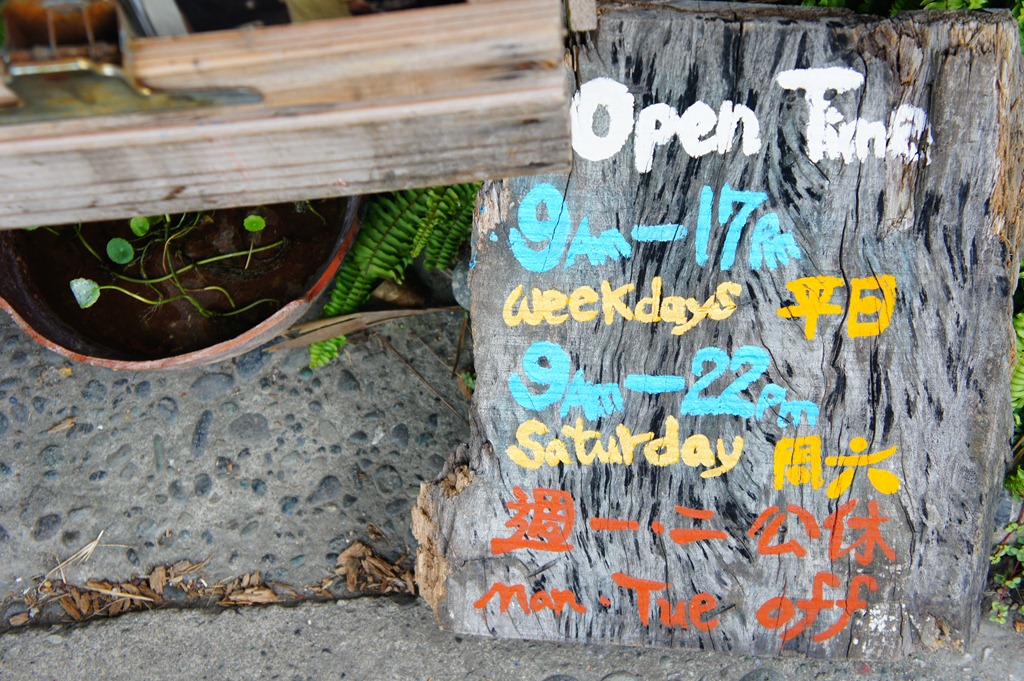 Open Time
9Am-17Pm
weekdays 平日
9Am-22pm
Saturday 周六
週一·二公休
man·Tue off